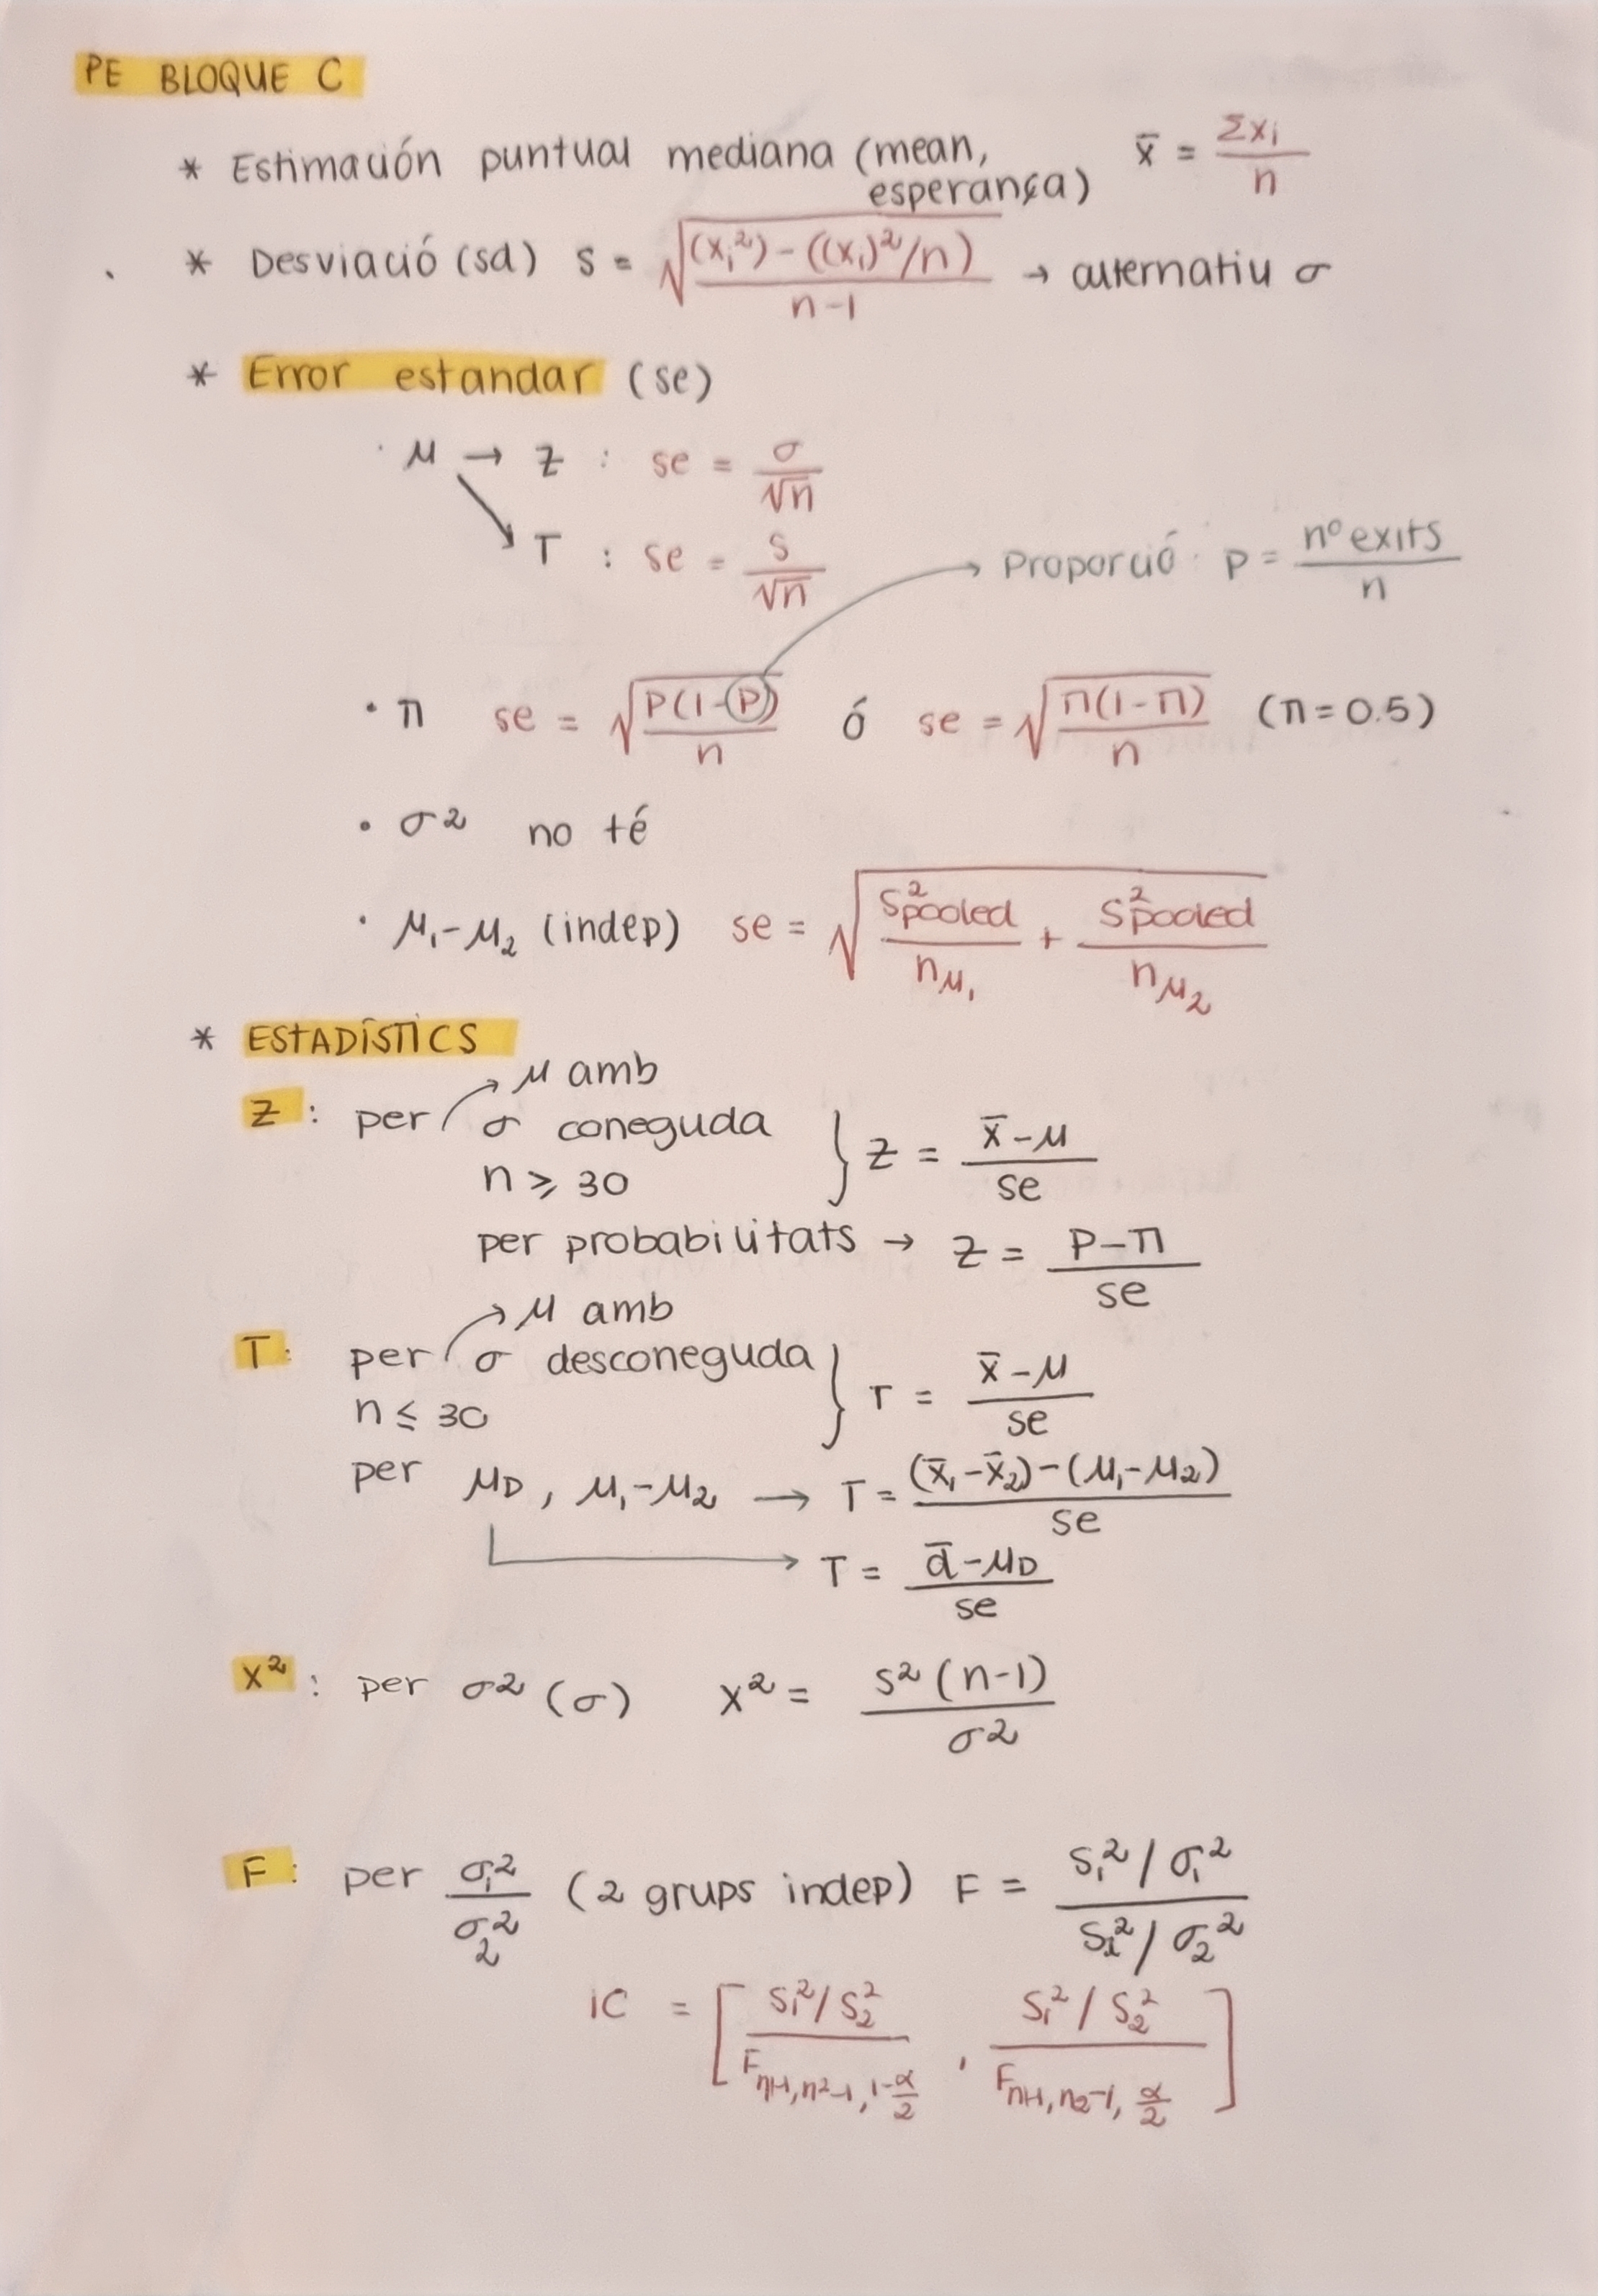 PE BLOQUE C
* Estimación puntual mediana (mean, esperança) x̄ = Σxi / n
* Desviació (sd) s = √(((xi²) - ((xi)²/n)) / (n-1)) → alternatiu σ
* Error estandar (se)
· μ → Z : se = σ / √n
T : se = s / √n
→ Proporció p = nº exits / n
· π se = √(P(1-P) / n) ó se = √(π(1-π) / n) (π=0.5)
· σ² no té
· μ₁-μ₂ (indep) se = √(S²pooled / nμ₁ + S²pooled / nμ₂)
* ESTADÍSTICS
Z : per → μ amb
σ coneguda
n ≥ 30 } Z = (x̄-μ) / se
per probabilitats → Z = (P-π) / se
T: per → μ amb
σ desconeguda
n ≤ 30 } T = (x̄-μ) / se
per μD, μ₁-μ₂ → T = ((x̄₁-x̄₂)-(μ₁-μ₂)) / se
→ T = (d̄-μD) / se
X² : per σ² (σ) X² = s²(n-1) / σ²
F: per σ₁² / σ₂² (2 grups indep) F = (S₁²/σ₁²) / (S₂²/σ₂²)
IC = [ (S₁²/S₂²) / F n1-1, n2-1, 1-α/2 , (S₁²/S₂²) / F n1-1, n2-1, α/2 ]